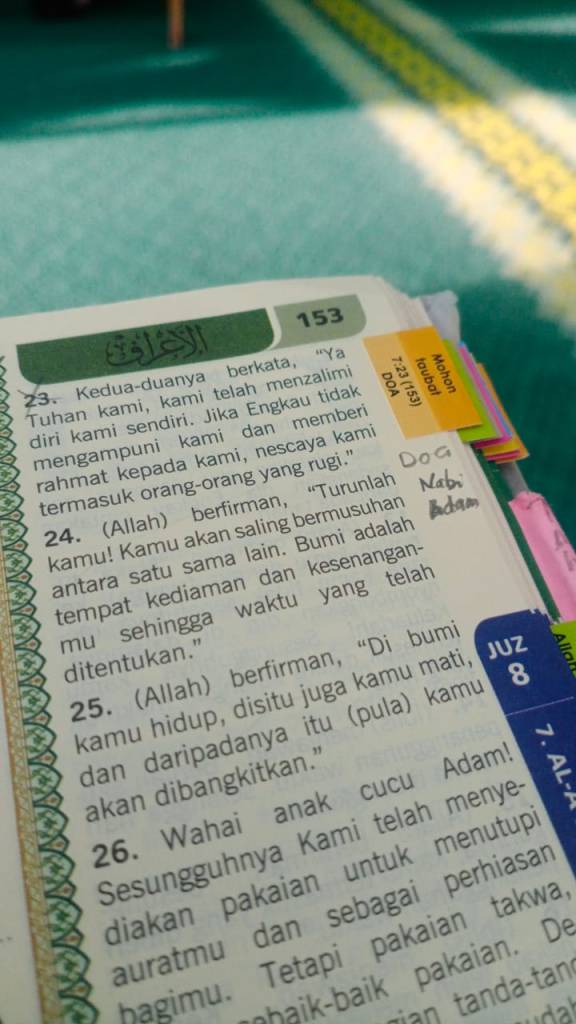 الأعراف
153
23. Kedua-duanya berkata, “Ya
Tuhan kami, kami telah menzalimi
diri kami sendiri. Jika Engkau tidak
mengampuni kami dan memberi
rahmat kepada kami, nescaya kami
termasuk orang-orang yang rugi.”
24. (Allah) berfirman, “Turunlah
kamu! Kamu akan saling bermusuhan
antara satu sama lain. Bumi adalah
tempat kediaman dan kesenangan-
mu sehingga waktu yang telah
ditentukan.”
25. (Allah) berfirman, “Di bumi
kamu hidup, disitu juga kamu mati,
dan daripadanya itu (pula) kamu
akan dibangkitkan.”
26. Wahai anak cucu Adam!
Sesungguhnya Kami telah menye-
diakan pakaian untuk menutupi
auratmu dan sebagai perhiasan
bagimu. Tetapi pakaian takwa,
sebaik-baik pakaian. De
tanda-tand
Mohon
taubat
7:23 (153)
DOA
Doa
Nabi
Adam
JUZ
8
7. AL-A